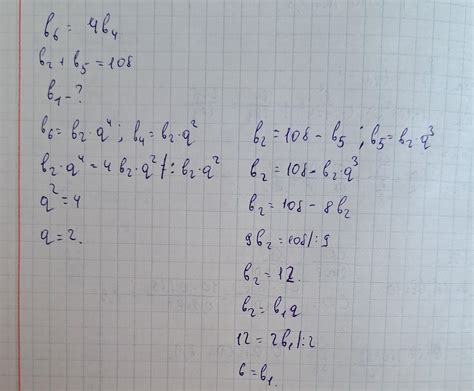 b₆ = 4b₄
b₂ + b₅ = 108
b₁ - ?
b₆ = b₂·q⁴ ; b₄ = b₂·q²
b₂·q⁴ = 4b₂·q² /: b₂·q²
q² = 4
q = 2.
b₂ = 108 - b₅ ; b₅ = b₂·q³
b₂ = 108 - b₂·q³
b₂ = 108 - 8b₂
9b₂ = 108 /: 9
b₂ = 12.
b₂ = b₁q
12 = 2b₁ /: 2
6 = b₁.